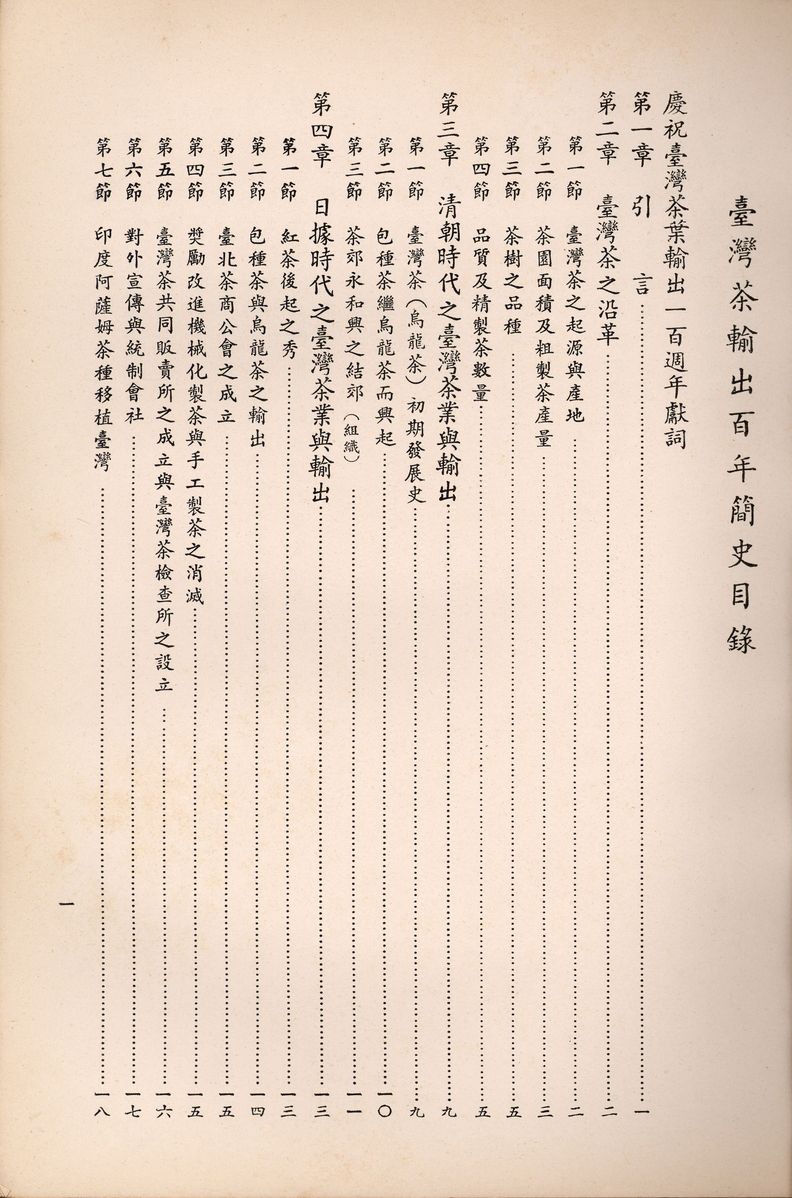 臺灣茶輸出百年簡史目錄
慶祝臺灣茶葉輸出一百週年獻詞
第一章 引言……一
第二章 臺灣茶之沿革……二
第一節 臺灣茶之起源與產地……二
第二節 茶園面積及粗製茶產量……三
第三節 茶樹之品種……五
第四節 品質及精製茶數量……五
第三章 清朝時代之臺灣茶業與輸出……九
第一節 臺灣茶（烏龍茶）初期發展史……九
第二節 包種茶繼烏龍茶而興起……一〇
第三節 茶郊永和興之結郊（組織）……一一
第四章 日據時代之臺灣茶業與輸出……一三
第一節 紅茶後起之秀……一三
第二節 包種茶與烏龍茶之輸出……一四
第三節 臺北茶商公會之成立……一五
第四節 獎勵改進機械化製茶與手工製茶之消滅……一五
第五節 臺灣茶共同販賣所之成立與臺灣茶檢查所之設立……一六
第六節 對外宣傳與統制會社……一七
第七節 印度阿薩姆茶種移植臺灣……一八
一